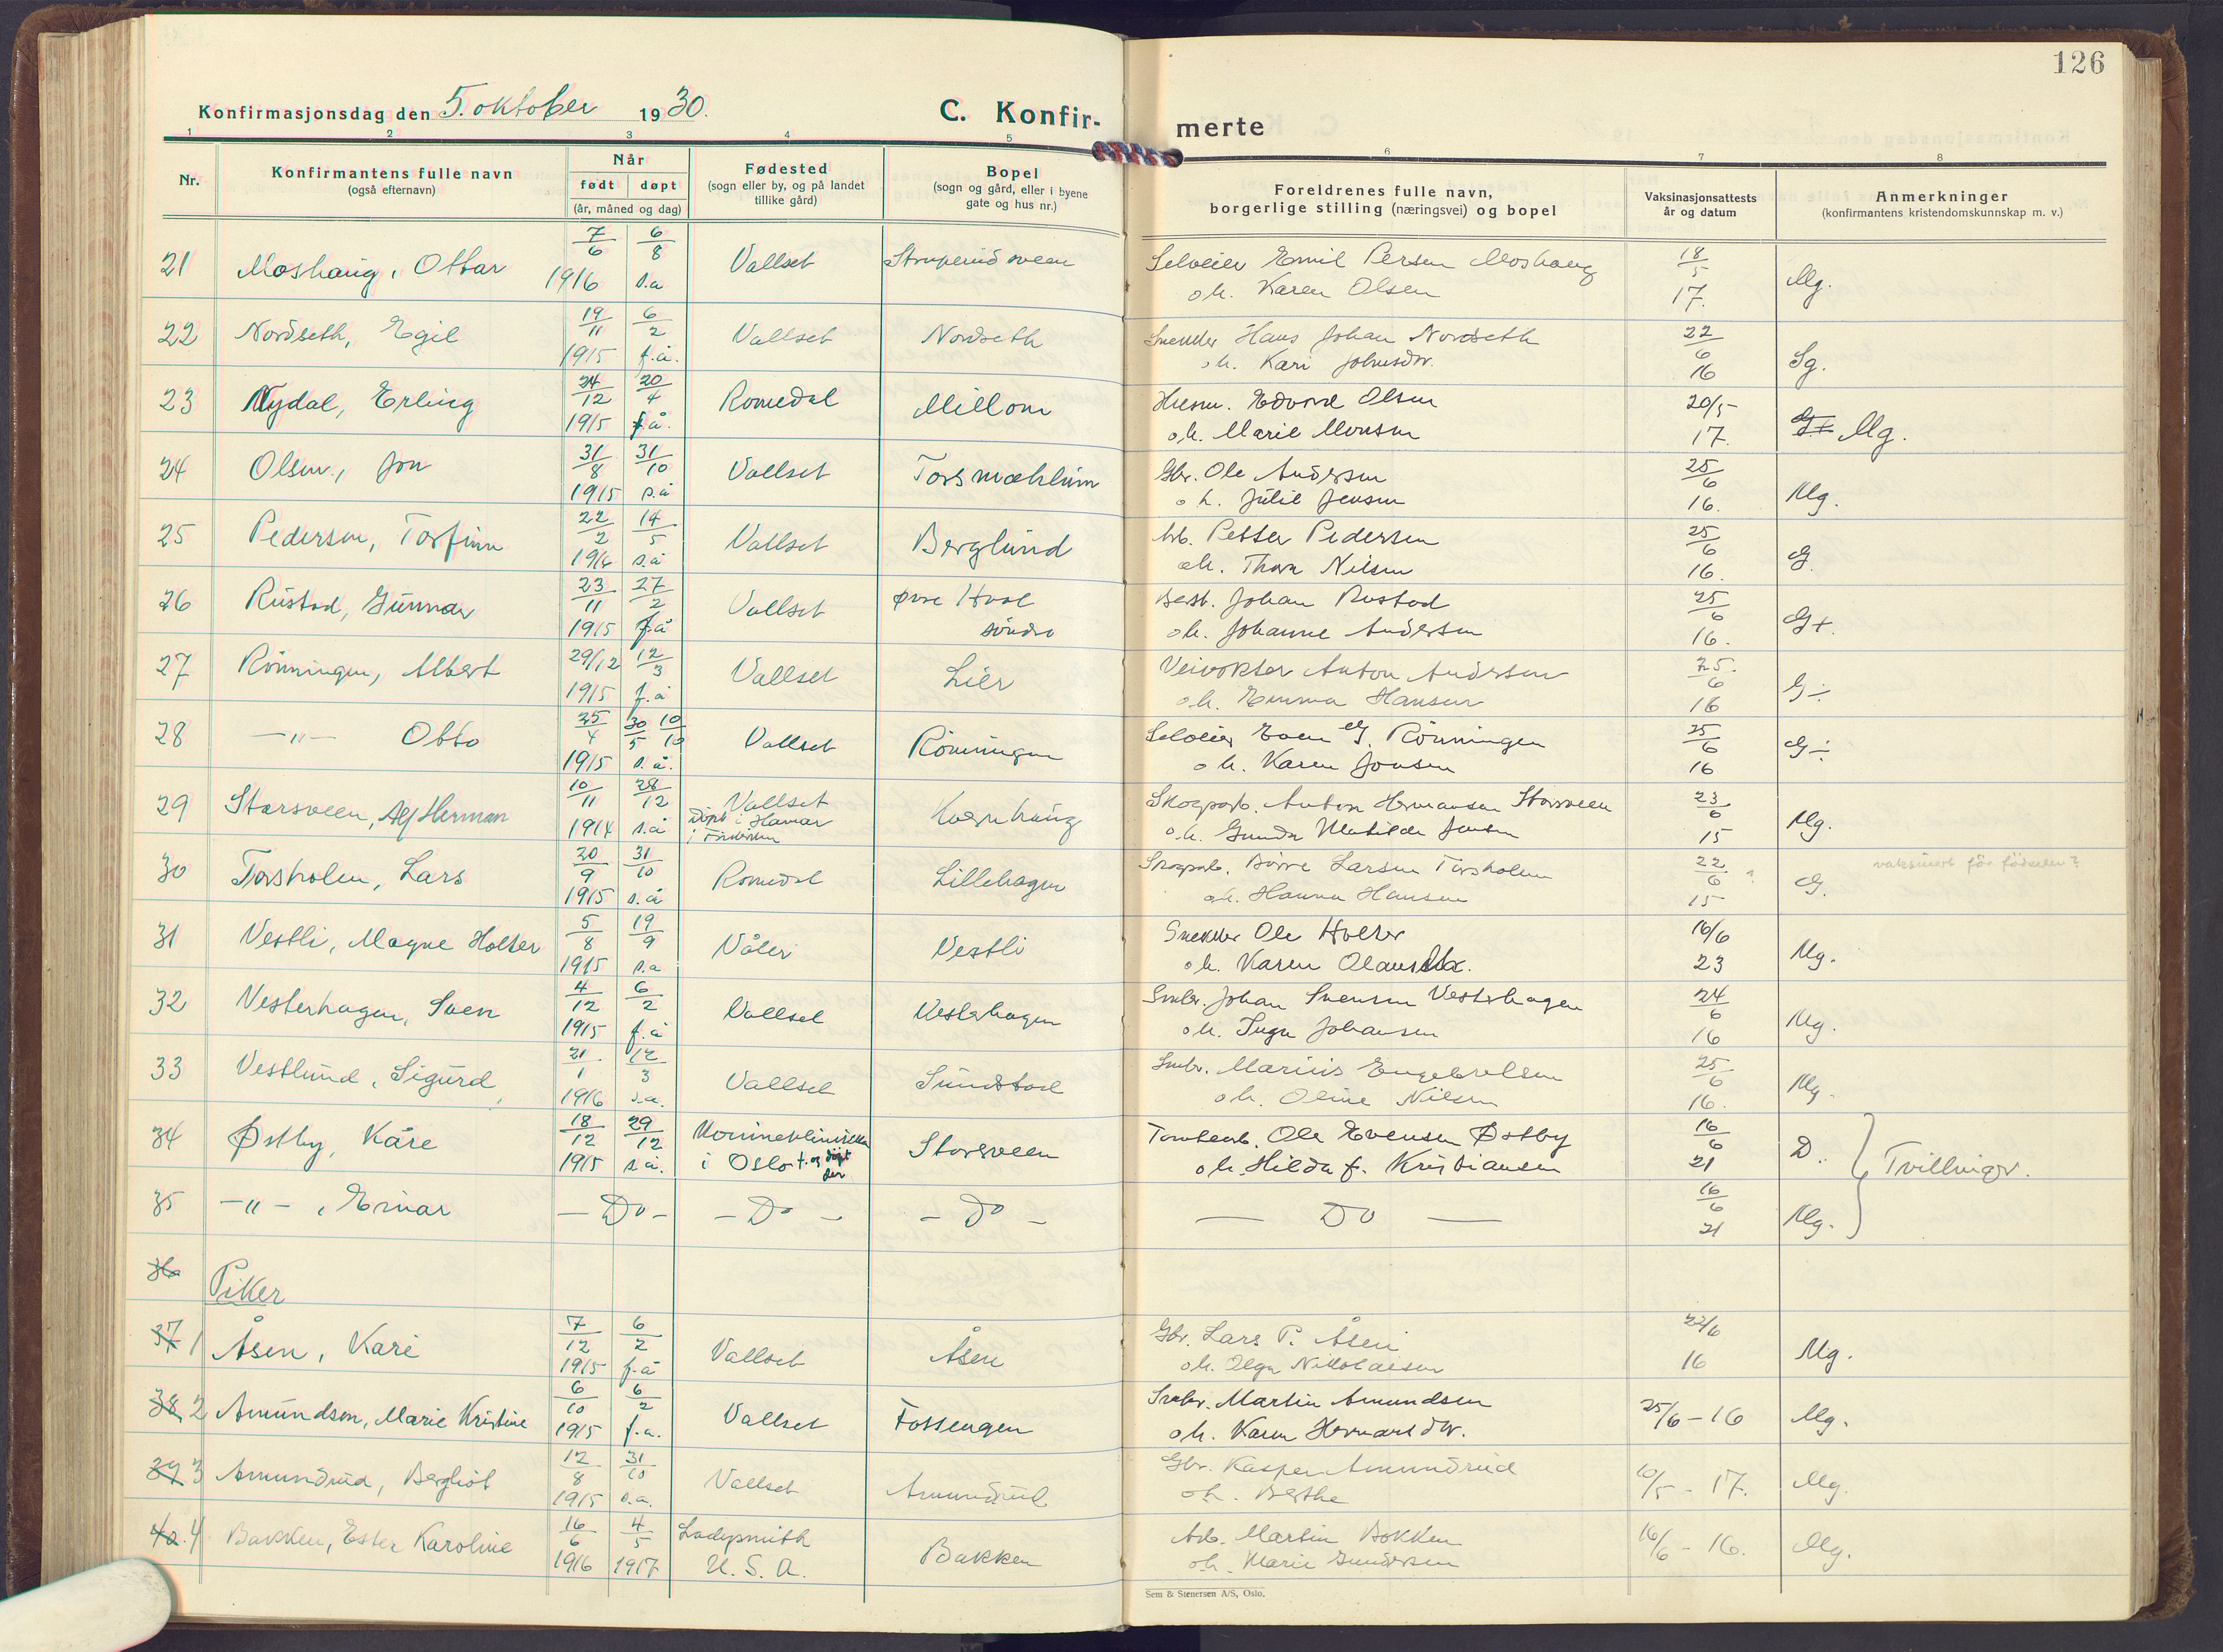 126
Konfirmasjonsdag den 5. oktober 1930.
C. Konfir-
merte
1 2 3 4 5 6 7 8
Nr.
Konfirmantens fulle navn
(også efternavn)
Når
født døpt
(år, måned og dag)
Fødested
(sogn eller by, og på landet
tillike gård)
Bopel
(sogn og gård, eller i byene
gate og hus nr.)
Foreldrenes fulle navn,
borgerlige stilling (næringsvei) og bopel
Vaksinasjonsattests
år og datum
Anmerkninger
(konfirmantens kristendomskunnskap m. v.)
21 Moshaug, Ottar 7/6 1916 6/8 s.a Vallset Struperudsveen Selveier Emil Persen Moshaug
o h. Karen Olsen 18/5 17. Mg.
22 Nordseth, Egil 19/11 1915 6/2 f.å. Vallset Nordseth Snekker Hans Johan Nordseth
o h. Kari Johnsdtr. 22/6 16 Sg.
23 Nydal, Erling 24/12 1915 20/4 f.å. Romedal Millom Husm. Edvard Olsen
o h. Marie Monsen 20/5 17. Mg.
24 Olsen, Jon 31/8 1915 31/10 s.å Vallset Torsmæhlum Gbr. Ole Andersen
o h. Julie Jensen 25/6 16. Mg.
25 Pedersen, Torfinn 22/2 1916 14/5 s.å Vallset Berglund Arb. Petter Pedersen
o h. Thora Nilsen 25/6 16. G.
26 Rustad, Gunnar 23/11 1915 27/2 f.å Vallset Øvre Hval
søndre Best. Johan Rustad
o h. Johanne Andersen 25/6 16. G+.
27 Rönningen, Albert 29/12 1915 12/3 f.å Vallset Lier Veivokter Anton Andersen
o h. Emma Hansen 25/6 16 G÷
28 —"— Otto 25/4 1915 30/5 10/10 s.å. Vallset Rönningen Selveier Even G. Rönningen
o h. Karen Jonsen 25/6 16 G÷
29 Storsveen, Alf Herman 10/11 1914 28/12 s.å Vallset
døpt i Hamar
Kvernhaug Skogsarb. Anton Hermansen Storsveen
o h. Gunda Matilde Jensen 23/6 15 Mg.
30 Torsholen, Lars 20/9 1915 31/10 s.å Romedal Lillehagen Skogsarb. Börre Larsen Torsholen
o h. Hanna Hansen 22/6 15 ? G. vaksinert för födselen?
31 Vestli, Magne Holter 5/8 1915 19/9 s.a Våler Vestli Snekker Ole Holter
o h. Karen Olausdtr. 16/6 23 Mg.
32 Vesterhagen, Sven 4/12 1915 6/2 f.å Vallset Vesterhagen Smbr. Johan Svensen Vesterhagen
o h. Inga Johansen 24/6 16 Mg.
33 Vestlund, Sigurd 21/1 1916 12/3 s.a. Vallset Sundstad Smbr. Marius Engebretsen
o h. Oline Nilsen 25/6 16. Mg.
34 Østby, Kåre 18/12 1915 29/12 s.å. Kvinneklinikken
i Oslo f. og døpt
der Storsveen Tømterarb. Ole Evensen Østby
o h. Hilda f. Kristiansen 16/6 21 D. Tvillinger.
35 —"— , Einar — Do — — Do — — Do — — Do — 16/6 21 Mg.
36
Piker
37 1 Åsen, Kari 7/12 1915 6/2 f.å Vallset Åsen Gbr. Lars P. Åsen
o h. Olga Nikolaisen 22/6 16 Mg.
38 2 Amundsen, Marie Kristine 6/10 1915 6/2 f.a. Vallset Fossengen Smbr. Martin Amundsen
o h. Karen Hermansdtr. 25/6 - 16 Mg.
39 3 Amundrud, Bergliot 12/8 1915 31/10 s.a. Vallset Amundrud Gbr. Kasper Amundrud
o h. Berthe 10/5 - 17. Mg.
40. 4 Bakken, Ester Karoline 16/6 1916 4/5 1917 Ladysmith
U. S. A. Bakken Arb. Martin Bakken
o h. Marie Gundersen 16/6 - 16. Mg.
Sem & Stenersen A/S, Oslo.